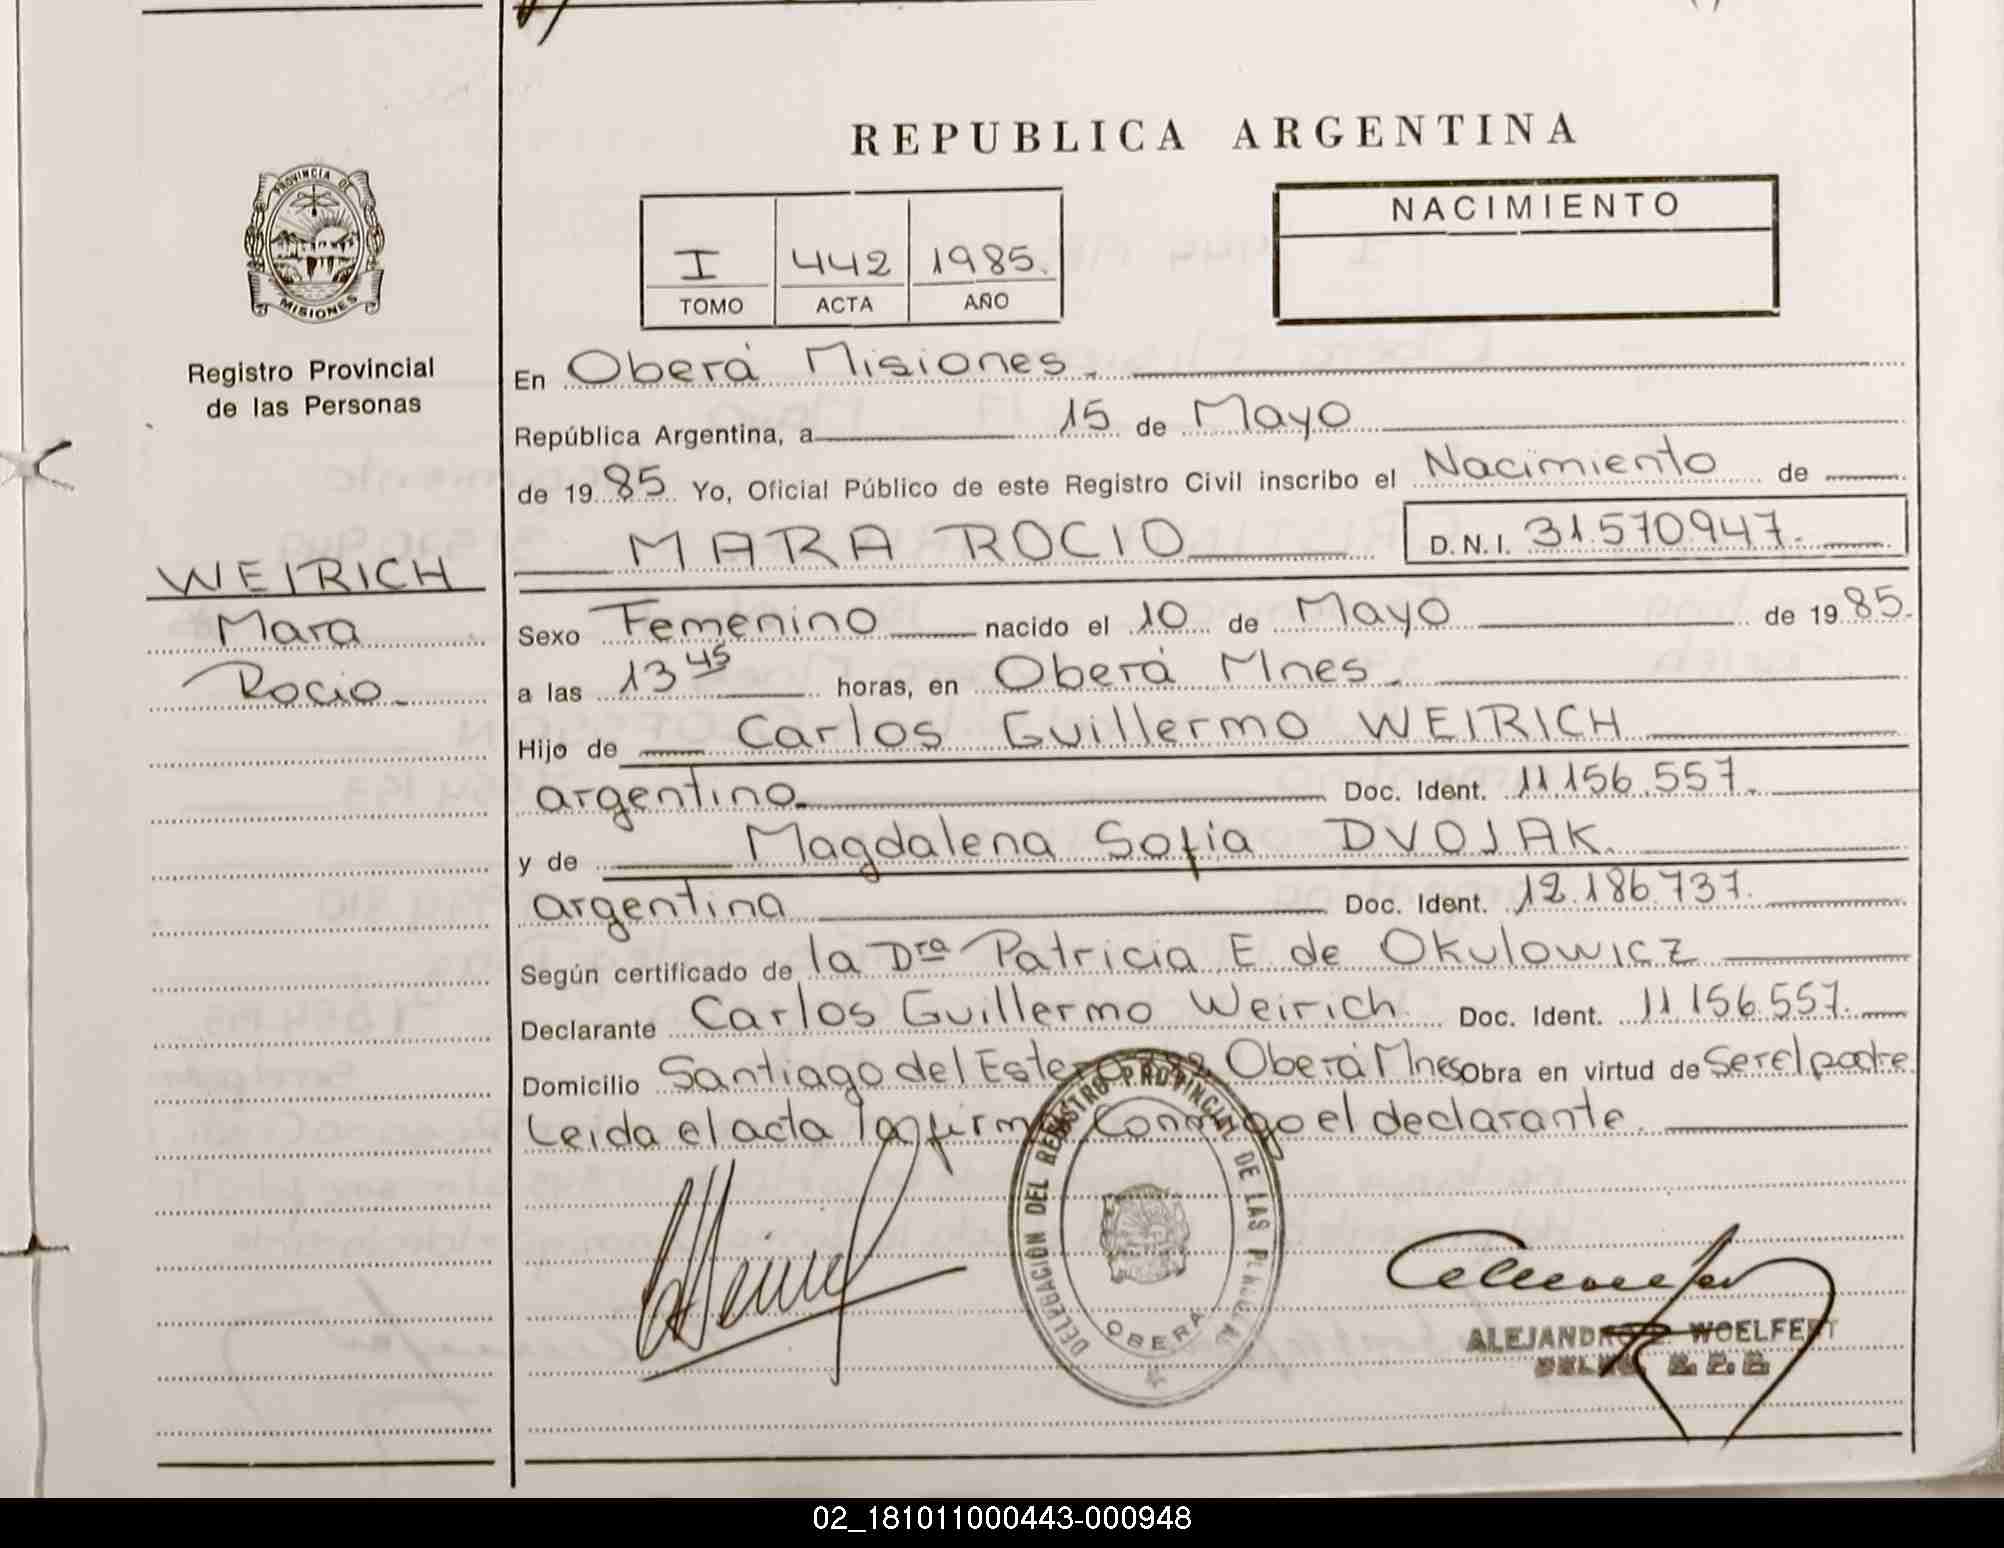 REPUBLICA ARGENTINA
PROVINCIA DE
MISIONES
Registro Provincial
de las Personas
WEIRICH
Mara
Rocio
NACIMIENTO
I 442 1985.
TOMO ACTA AÑO
En Oberá Misiones.
República Argentina, a 15 de Mayo
de 1985 Yo, Oficial Público de este Registro Civil inscribo el Nacimiento de
MARA ROCIO D.N.I. 31.570.947.
Sexo Femenino nacido el 10 de Mayo de 1985.
a las 13 45 horas, en Oberá Mnes.
Hijo de Carlos Guillermo WEIRICH
argentino. Doc. Ident. 11.156.557.
y de Magdalena Sofia DVOJAK.
argentina Doc. Ident. 12.186.737.
Según certificado de la Dra Patricia E. de Okulowicz
Declarante Carlos Guillermo Weirich. Doc. Ident. 11.156.557.
Domicilio Santiago del Estero Oberá Mnes Obra en virtud de Ser el padre
Leida el acta la firma Conmigo el declarante.
DELEGACION DEL REGISTRO PROVINCIAL DE LAS PERSONAS
OBERA
ALEJANDRO WOELFERT
02_181011000443-000948